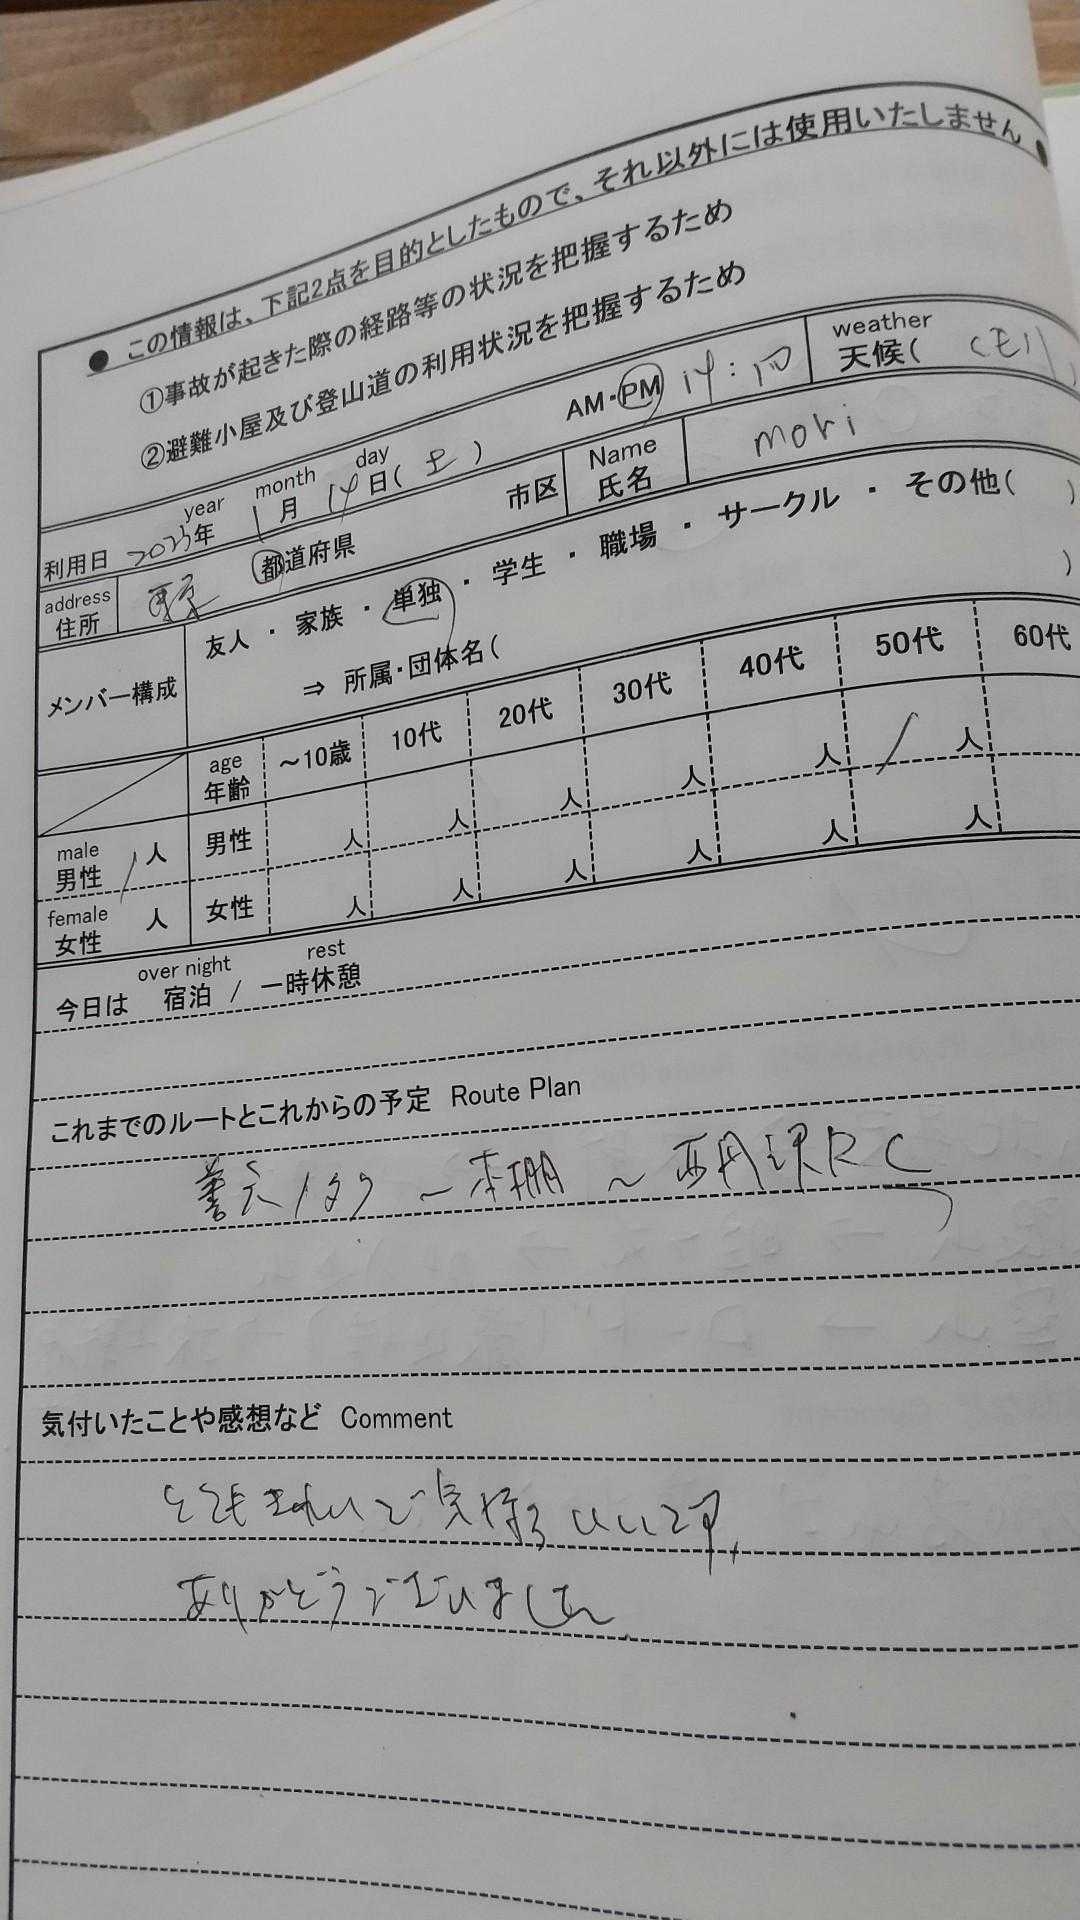 ● この情報は、下記2点を目的としたもので、それ以外には使用いたしません ●
①事故が起きた際の経路等の状況を把握するため
②避難小屋及び登山道の利用状況を把握するため
year month day weather
利用日 2023年 1月 14日(土) AM・PM 14:10 天候(くもり)
address Name
住所 東京 都道府県 市区 氏名 mori
メンバー構成 友人 ・ 家族 ・ 単独 ・ 学生 ・ 職場 ・ サークル ・ その他( )
⇒ 所属・団体名( )
age
年齢 ～10歳 10代 20代 30代 40代 50代 60代
male
男性 1人 男性 人 人 人 人 人 1人
female
女性 人 女性 人 人 人 人 人 人
over night rest
今日は 宿泊 / 一時休憩
これまでのルートとこれからの予定 Route Plan
～本棚 ～西丹沢
気付いたことや感想など Comment
とてもきれいで気持ちいいです、
ありがとうございました。